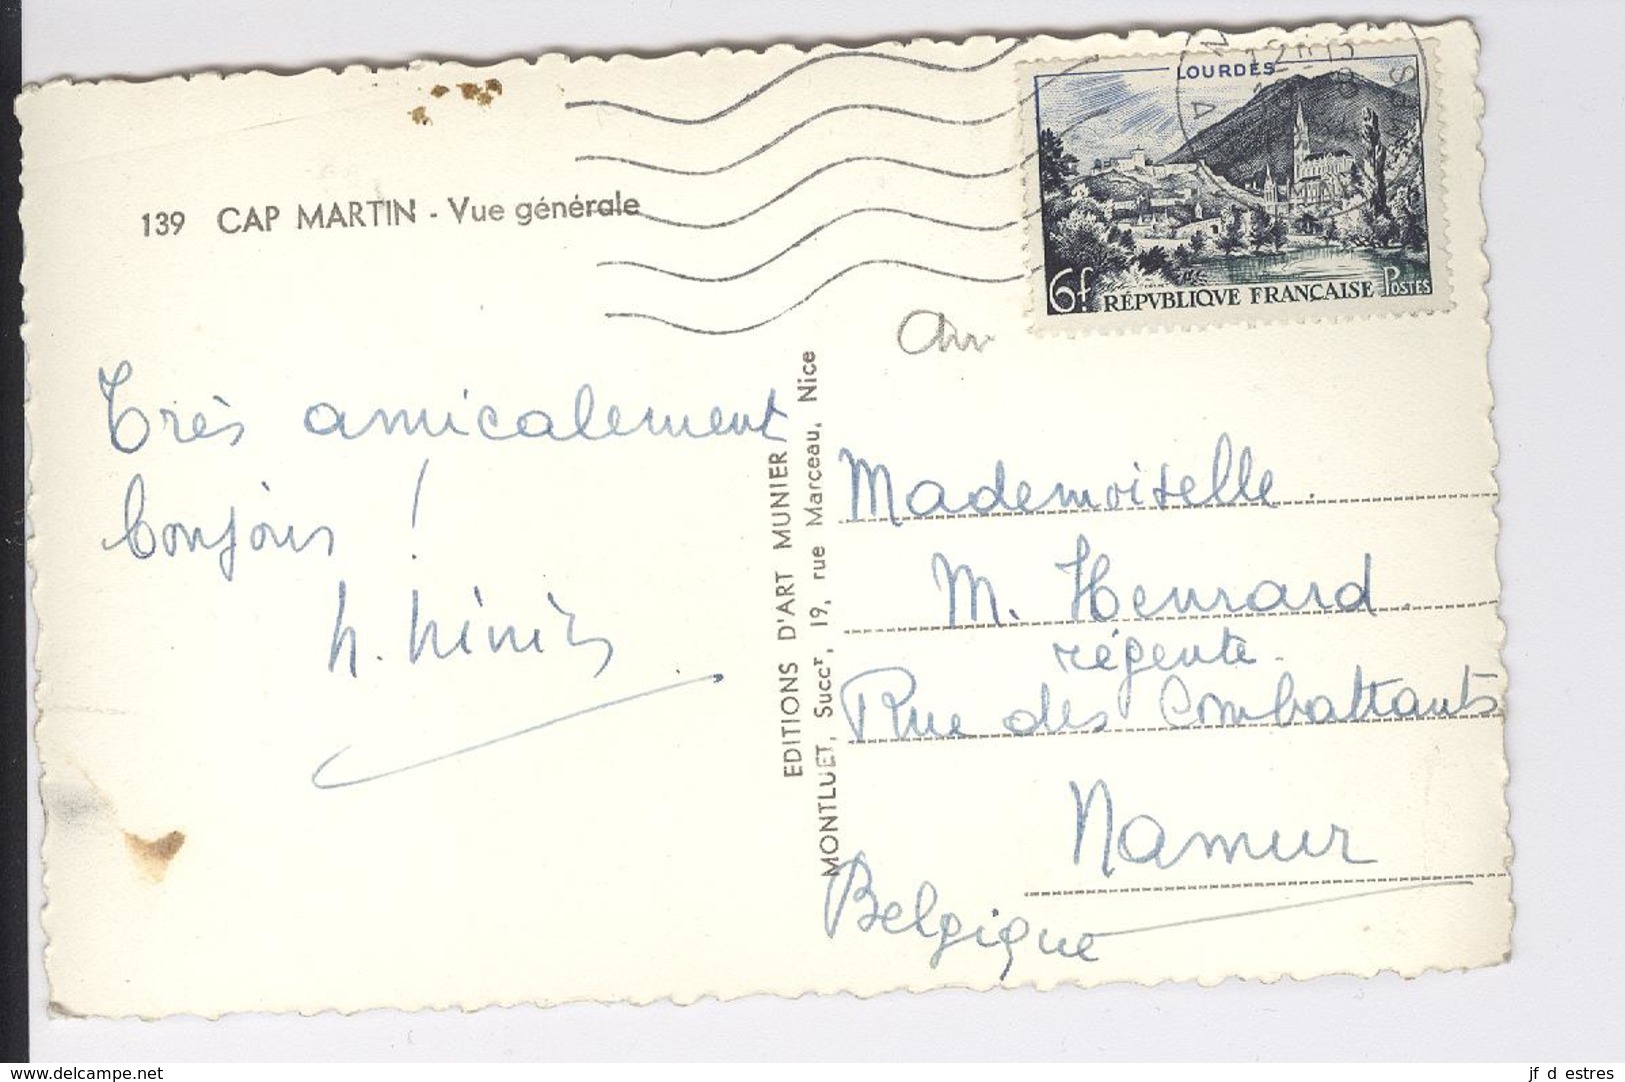 139 CAP MARTIN - Vue générale
LOURDES
6f RÉPVBLIQVE FRANÇAISE POSTES
Très amicalement
bonjour !
EDITIONS D'ART MUNIER
MONTLUET, Succr, 19, rue Marceau, Nice
Mademoiselle
M. Henrard
régente
Rue des Combattants
Namur
Belgique
www.delcampe.net
jf d estres